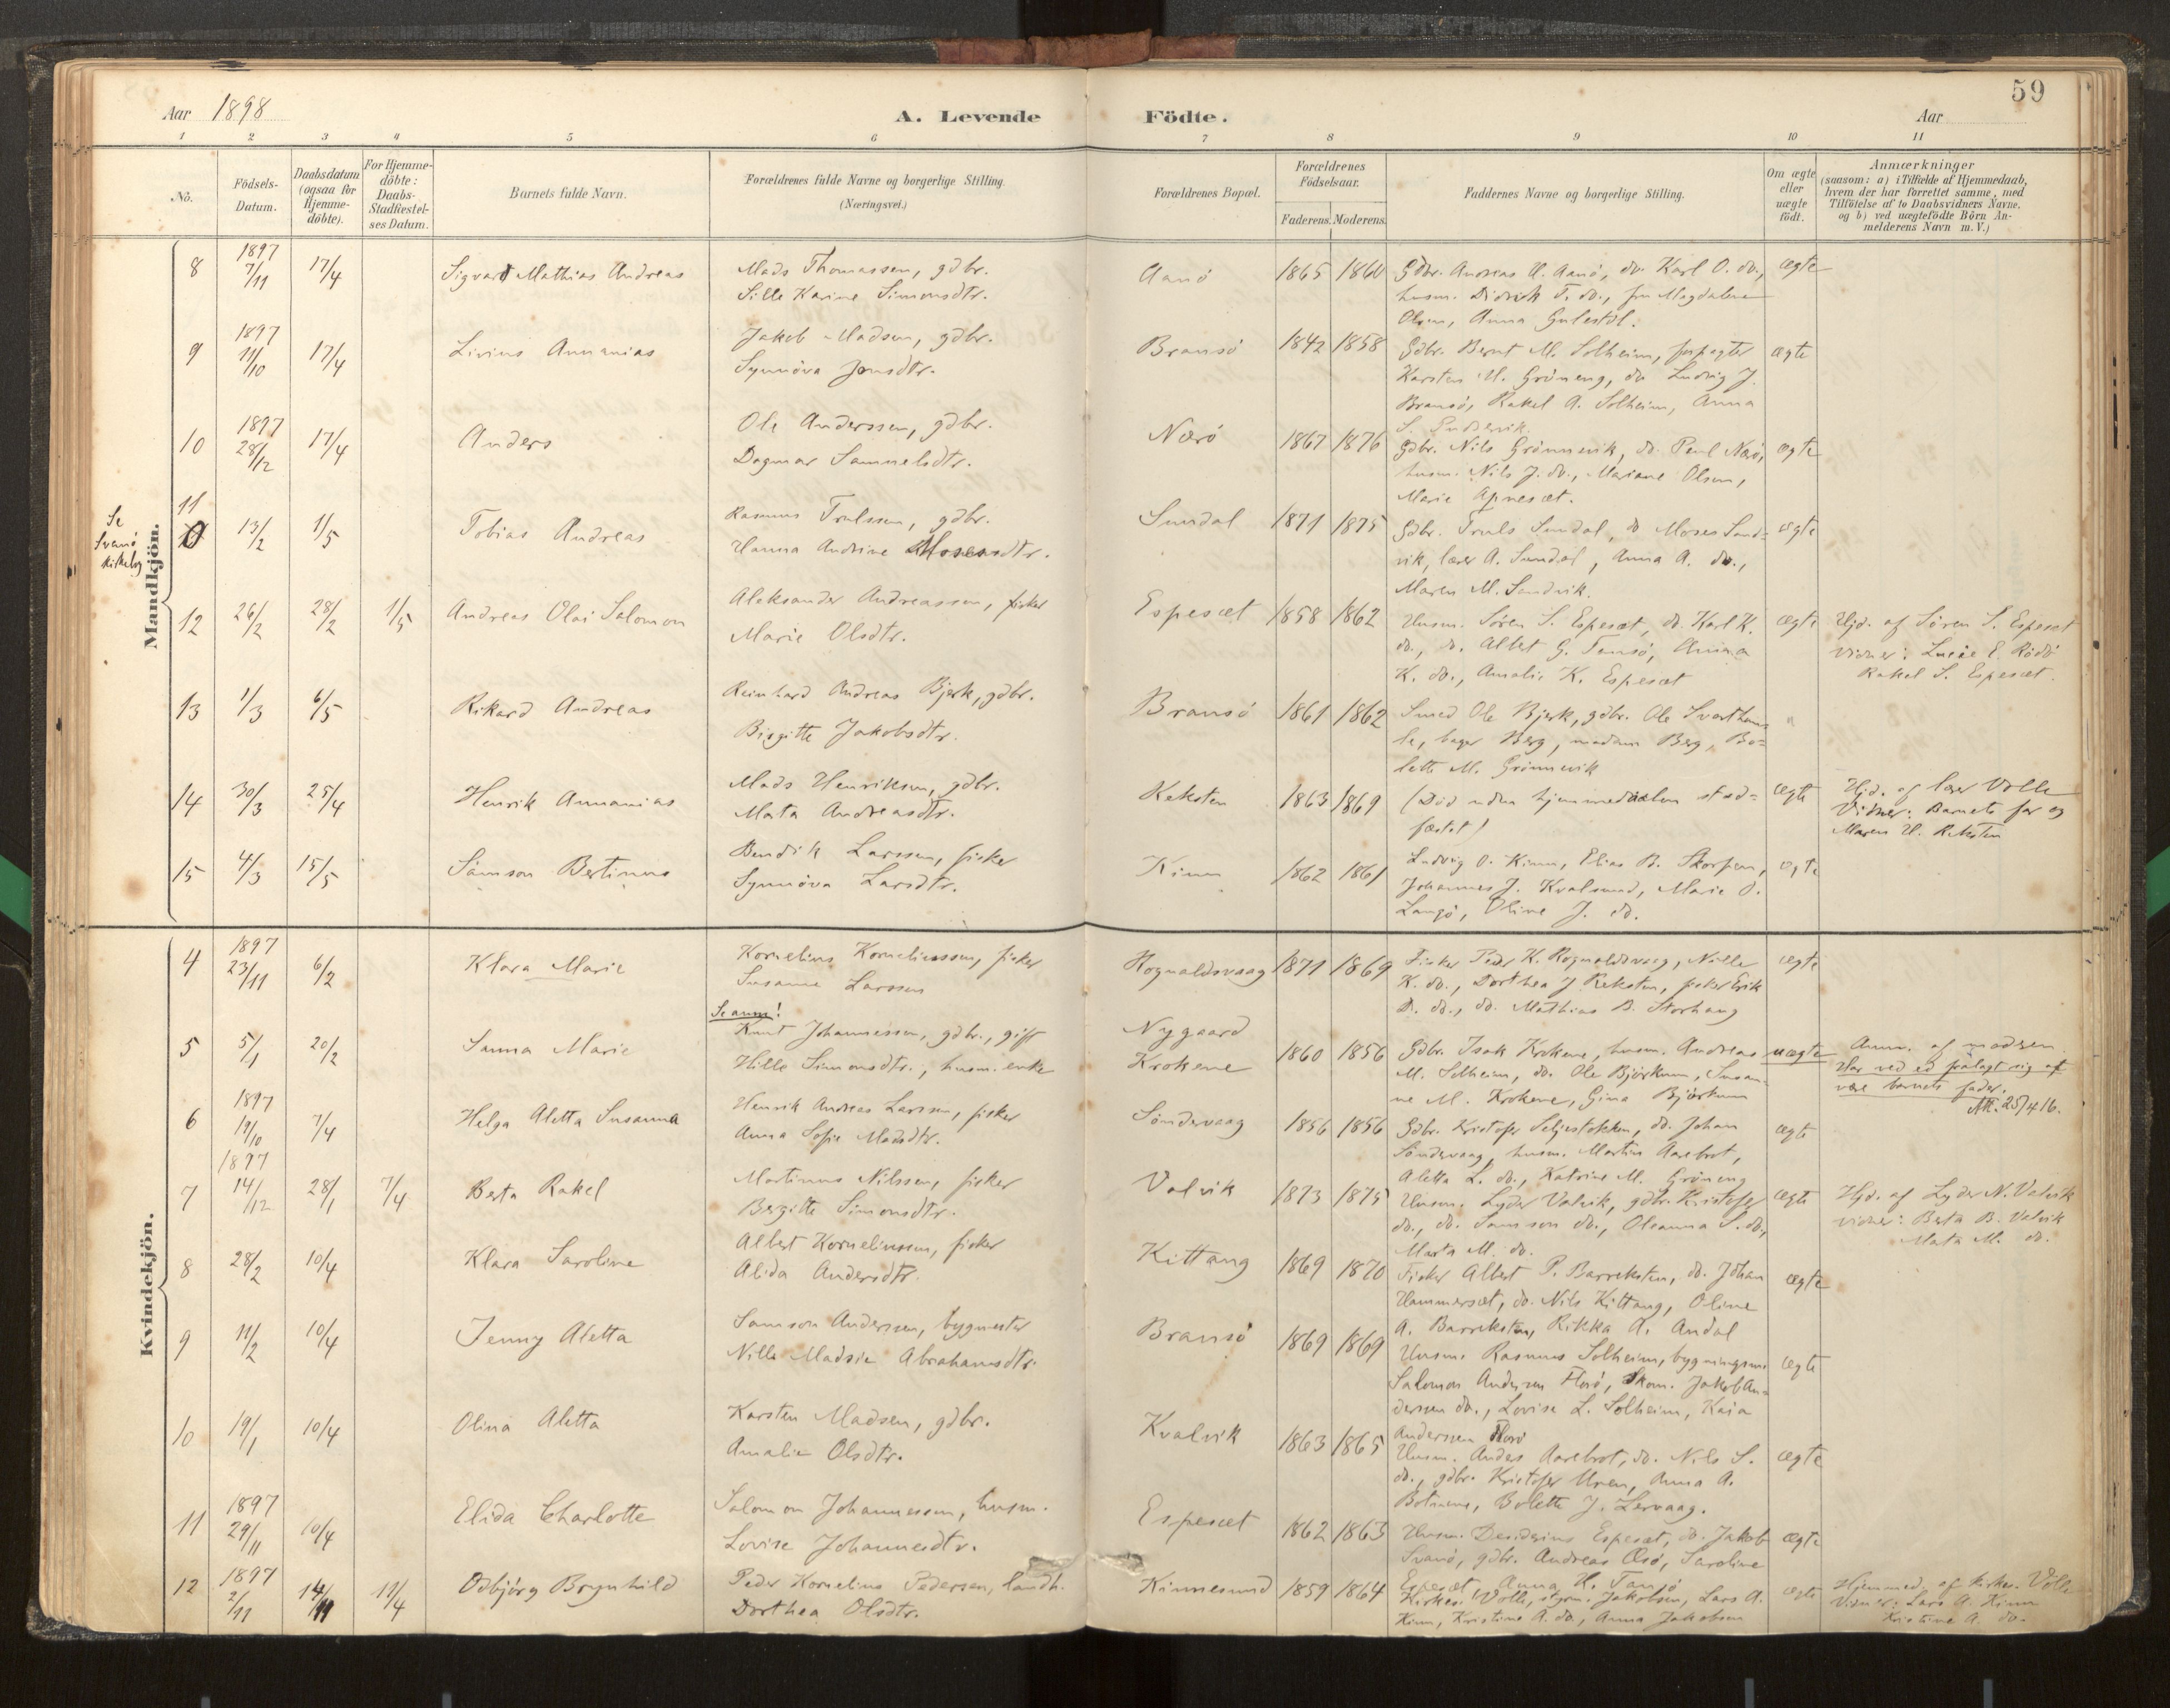 59
Aar 1898
A. Levende Födte.
Aar
1 2 3 4 5 6 7 8 9 10 11
No.
Födsels-
Datum.
Daabsdatum
(ogsaa for
Hjemme-
döbte).
For Hjemme-
döbte:
Daabs-
Stadfæstel-
ses Datum.
Barnets fulde Navn.
Forældrenes fulde Navne og borgerlige Stilling.
(Næringsvei.)
Forældrenes Bopæl.
Forældrenes
Födselsaar.
Faderens. Moderens.
Faddernes Navne og borgerlige Stilling.
Om ægte
eller
uægte
födt.
Anmærkninger
(saasom: a) i Tilfælde af Hjemmedaab,
hvem der har forrettet samme, med
Tilföielse af to Daabsvidners Navne.
og b) ved uægtefödte Börn An-
melderens Navn m. V.)
Mandkjön.
8 1897 7/11 17/4 Sigvart Mathias Andreas
Mads Thomassen, gdbr.
Sille Karine Simonsdtr.
Aanö 1865 1860
Gdbr. Andreas H. Aanö, do. Karl O. do.,
husm. Didrik T. do., fru Magdalene
Olsen, Anna Gulestöl.
ægte
9 1897 11/10 17/4 Livius Annanias
Jakob Madsen, gdbr.
Synnöva Jonsdtr.
Bransö 1842 1858
Gdbr. Bernt M. Solheim, forpagter
Karsten M. Gröneng, do. Ludvig J.
Bransö, Rakel A. Solheim, Anna
S.
ægte
10 1897 28/12 17/4 Anders
Ole Anderssen, gdbr.
Dagmar Samuelsdtr.
Nærö 1867 1876
Gdbr. Nils Grönnevik, do. Paul Nærö,
husm. Nils J. do., Mariane Olsen,
Marie Apnesæt.
ægte
Se
Svanö
kirkebog
11
13/2 1/5 Tobias Andreas
Rasmus Trulssen, gdbr.
Hanna Andrine Mosesdtr.
Sundal 1871 1875
Gdbr. Truls Sundal, do Moses Sand-
vik, lærer A. Sundal, Anna A. do.,
Maren M. Sandvik.
ægte
12 26/2 28/2 1/5 Andreas Olai Salomon
Aleksander Andreassen, fisker
Marie Olsdtr.
Espesæt 1858 1862
Husm. Sören S. Espesæt, do. Karl K.
do., do. Albet G. Tansö, Anna
K. do., Amalie K. Espesæt
ægte
Hjd. af Sören S. Espesæt
vidner: Lucie E. Rödö
Rakel S. Espesæt.
13 1/3 6/5 Rikard Andreas
Reinhard Andreas Bjerk, gdbr.
Birgitte Jakobsdtr.
Bransö 1861 1862
Smed Ole Bjerk, gdbr. Ole Svarthum-
le, bager Berg, madam Berg, Bo-
lette M. Grönnevik
"
14 30/3 25/4 Henrik Annanias
Mads Henriksen, gdbr.
Marta Andreasdtr.
Reksten 1863 1869
(Död uden hjemmedaaben stad-
fæstet)
ægte
Hjd. af lærer Volle
Vidner: Barnets far og
Maren H. Reksten
15 4/3 15/5 Samson Bertinus
Bendik Larssen, fisker
Synnöva Larsdtr.
Kinn 1862 1861
Ludvig O. Kinn, Elias B. Skorpen,
Johannes J. Kvalsund, Marie O.
Langö, Oline J. do.
ægte
Kvindekjön.
4 1897 23/11 6/2 Klara Marie
Kornelius Korneliussen, fisker
Susanne Larssen
Rognaldsvaag 1871 1869
Fisker Peder K. Rognaldsvaag, Nille
K. do., Dorthea J Reksten, fisker Erik
D. do., do. Mathias B. Storhaug
ægte
Se anm!
5 5/1 20/2 Sanna Marie
Knut Johannessen, gdbr., gift
Hille Simonsdtr., husm. enke
Nygaard
Krokene
1860 1856
Gdbr. Isak Krokene, husm. Andreas
M. Solheim, do. Ole Björkum, Susan-
ne M. Krokene, Gina Björkum
uægte
Anm. af modren.
Har ved ed fralagt sig at
være barnets fader.
25/4 16.
6 1897 19/10 7/4 Helga Aletta Susanna
Henrik Andreas Larssen, fisker
Anna Sofie Madsdtr.
Söndervaag 1856 1856
Gdbr. Kristofer Seljestokken, do. Johan
Söndervaag, husm. Martin Aarebrot,
Aletta L. do., Katrine M. Gröneng
ægte
7 1897 14/12 28/1 7/4 Berta Rakel
Martinus Nilssen, fisker
Bergitte Simonsdtr.
Valvik 1873 1875
Husm. Lyder Valvik, gdbr. Kristofer
do., do. Samson do., Oleanna S. do.,
Marta M. do.
ægte
Hjd. af Lyder N. Valvik
vidner: Berta B. Valvik
Marta M. do.
8 28/2 10/4 Klara Saroline
Albert Korneliussen, fisker
Alida Andersdtr.
Kittang 1869 1870
Fisker Albert P. Barreksten, do. Johan
Hammersæt, do. Nils Kittang, Oline
A. Barreksten, Rikka A. Andal
ægte
9 11/2 10/4 Jenny Aletta
Samson Anderssen, bygmester
Nille Madsie Abrahamsdtr.
Bransö 1869 1869
Husm. Rasmus Solheim, bygningsm.
Salomon Andersen Florö, Skom. Jakob An-
derssen do., Lovise L. Solheim, Kaia
Anderssen Florö
ægte
10 19/1 10/4 Olina Aletta
Karsten Madsen, gdbr.
Amalie Olsdtr.
Kvalvik 1863 1865
Husm. Anders Aarebrot, do. Nils S.
do., gdbr. Kristofer Uren, Anna A.
Botnene, Bolette J. Lervaag.
ægte
11 1897 29/11 10/4 Elida Charlotte
Salomon Johannessen, husm.
Lovise Johannesdtr.
Espesæt 1862 1863
Husm. Desiderius Espesæt, do. Jakob
Svanö, gdbr. Andreas Œsö, Saroline
Espesæt, Anna H. Tansö
ægte
12 1897 2/11 14/11 19/4 Odbjörg Brynhild
Peder Kornelius Pedersen, landh.
Dorthea Olsdtr.
Kinnesund 1859 1864
Kirkes. Volle, styrm. Jakobsen, Lars A.
Kinn, Kristine A. do., Anna Jakobsen
ægte
Hjemmed. af kirkes. Volle
Vidner: Lars A. Kinn
Kristine A. do.